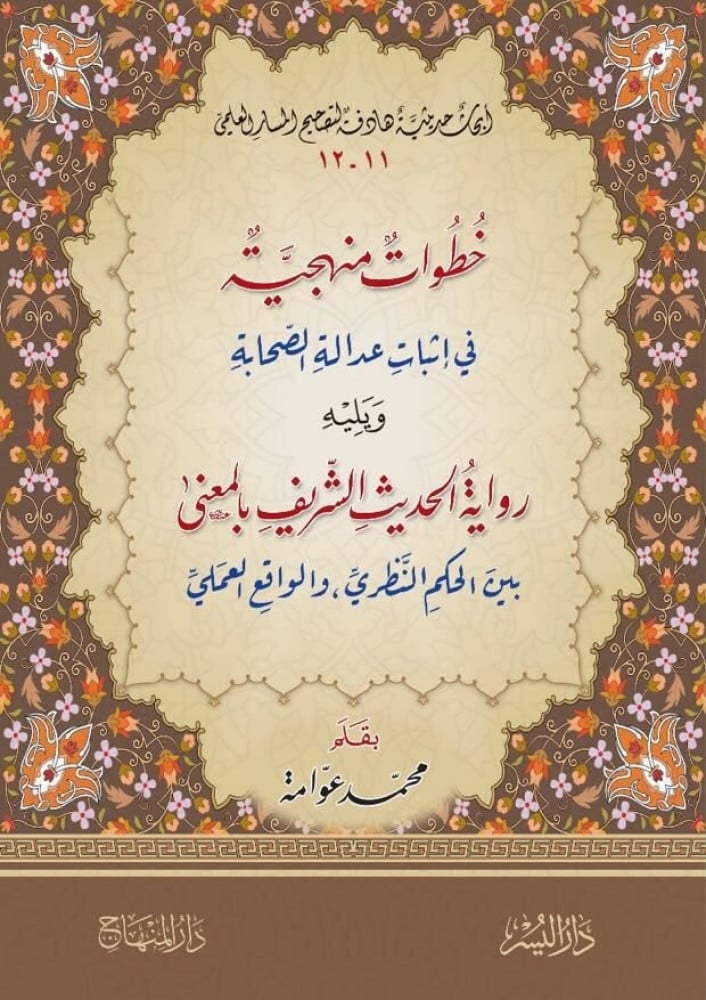 أبحاث حديثيَّةٌ هادفةٌ لتصحيح المسار العلمي
١١-١٢
خُطُواتٌ منهجيَّةٌ
في إثباتِ عدالةِ الصَّحابةِ
وَيَلِيْهِ
روايةُ الحديثِ الشَّريفِ بالمعنى
بينَ الحكمِ النَّظريِّ، والواقعِ العمليِّ
بقَلَم
محمّد عوّامة
دَارُ اليُسْر
دَارُ المِنْهَاج